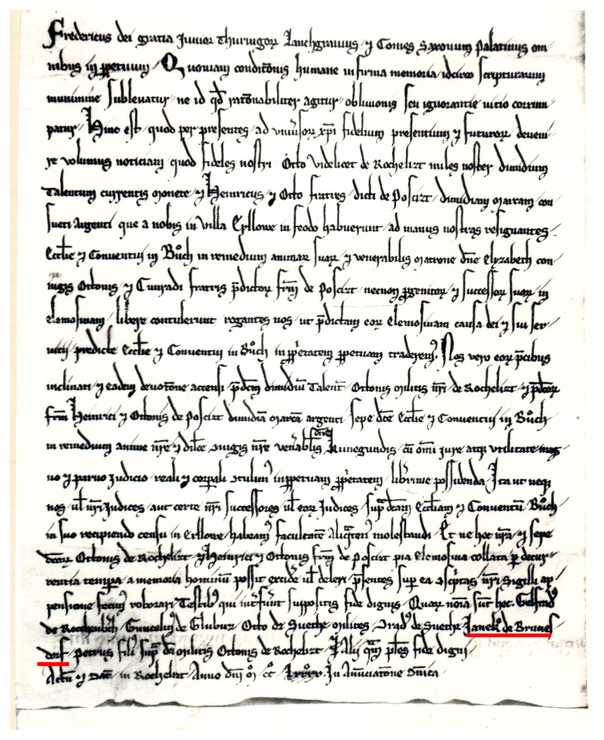 Fredericus dei gratia Junior Thuringor Lanchgravius ⁊ Comes Saxonum Palatinus om
nibus in ppetuum Quoniam conditonis humane infirma memoria idcirco scripturarum
munimine sublevatur ne id qd rationabiliter agitur oblivionis seu ignorantie vitio corrum
patur Hinc est quod per presentes ad vniversor xpi fidelium presentium ⁊ futuror deveni
re volumus noticiam quod fideles nostri Otto videlicet de Rochelizt miles noster dimidium
Talentum currentis monete ⁊ Heinricus ⁊ Otto fratres dicti de Poscizt dimidiam marcam con
sueti Argenti que a nobis in villa Erllowe in feodo habuerunt ad manus nostras resignantes
Ecclie ⁊ Conventui in Bůch in remedium animar suar ⁊ venerabilis matrone dne Elyzabeth con
iugis Ottonis ⁊ Cunradi fratris pdictor frm de Poscizt necnon pgenitor ⁊ successor suor in
elemosinam libere contulerunt rogantes nos ut pdictam eor elemosinam causa dei ⁊ sui ser
vitii predicte Ecclie ⁊ Conventui in Bůch in ppetatem ppetuam traderemus Nos vero eor pcibus
inclinati ⁊ eadem devotone accensi pdcm dimidiu Talent Ottonis militis nri de Rochelizt ⁊ pdcor
frm Heinrici ⁊ Ottonis de Poscizt dimidia marca argenti sepe dce Ecclie ⁊ Conventui in Bůch
in remedium anime nre ⁊ dilce iugis nre venablis dne Kunegundis cu omi iure atq utilitate mag
no ⁊ parvo Judicio reali ⁊ corpali titulu inppetuam ppetatem libere possidenda Ita ut neq
nos ul nri Judices aut certe nri successores ul eor Judices supdcam Eccliam ⁊ Conventu Bůch
in suo recipiendo censu in Erllowe habeam facultate aliqten molestandi Et ne hec nra ⁊ sepe
dcor Ottonis de Rochelizt ⁊ Heinrici ⁊ Ottonis frm de Poscizt pia elemosina collata p decur
rentia tempra a memoria hominu possit excide ul deleri psentes sup ea scriptas nri sigilli ap
pensione fecim roborari Testib qui infunt suppositis fide dignis Quor noia sut hec Gelfrad
de Rochenberch Guncelin de Glubuz Otto de Suethe milites Drad de Suethe Janck de Brunes
dorf Petrus fili sup dci militis Ottonis de Rochelizt ⁊ Alii qm ples fide digni
Actu ⁊ Dat in Rochelizt Anno dni m cc lxxxv In Anuciatone dnica